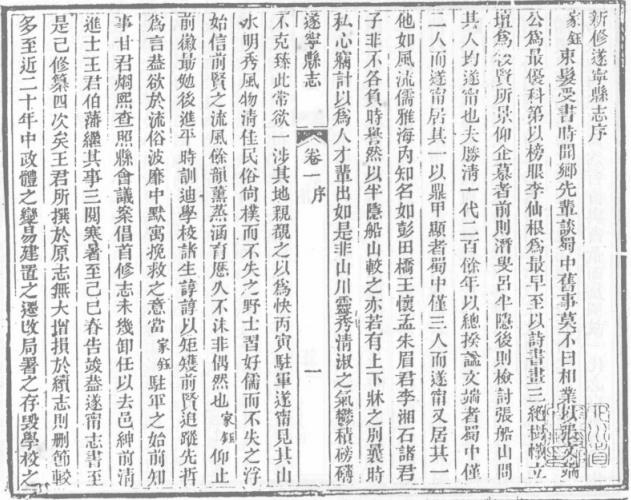 新修遂寧縣志序
家鈺束髮受書時聞鄉先輩談蜀中舊事莫不曰相業以張文端
公爲最優科第以榜眼李仙根爲最早至以詩書畫三絕樹幟立
壇爲後賢所景仰企慕者前則潛叟呂半隱後則檢討張船山問
其人均遂甯也夫勝清一代二百餘年以總揆謚文端者蜀中僅
二人而遂甯居其一以鼎甲顯者蜀中僅三人而遂甯又居其一
他如風流儒雅海內知名如彭田橋王懷孟朱眉君李湘石諸君
子非不各負時譽然以半隱船山較之亦若有上下牀之別曩時
私心竊計以爲人才輩出如是非山川靈秀清淑之氣鬱積磅礴
遂寧縣志
卷一序
一
不克臻此常欲一涉其地親覩之以爲快丙寅駐軍遂甯見其山
水明秀風物清佳民俗尙樸而不失之野士習好儒而不失之浮
始信前賢之流風餘韻薰蒸涵育歷久不沬非偶然也家鈺仰止
前徽最勉後進平時訓迪學校諸生諄諄以矩矱前賢追蹤先哲
爲言蓋欲於流俗波靡中默寓挽救之意當家鈺駐軍之始前知
事甘君燜熙查照縣會議案倡首修志未幾卸任以去邑紳前清
進士王君伯藩繼其事三閱寒暑至己巳春告竣蓋遂甯志書至
是已修纂四次矣王君所撰於原志無大增損於續志則刪節較
多至近二十年中政體之變易建置之遷改局署之存毀學校之